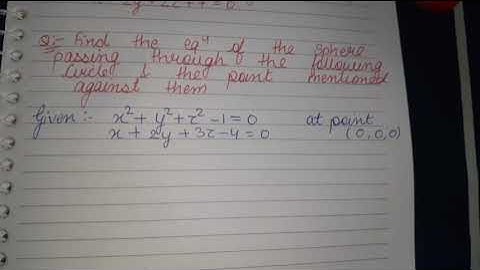 Q:- Find the eqⁿ of the sphere
passing through the following
circle & the point mentioned
against them
Given:- x² + y² + z² - 1 = 0 at point
x + 2y + 3z - 4 = 0 (0,0,0)